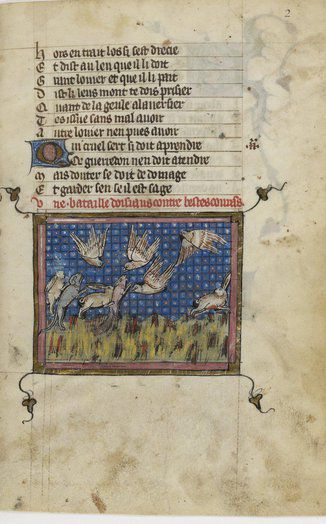 2
hors en trait los si sest drecie
Et dist au leu que il li doit
louier et que il li
Dist li leus mont te dois prisier
Quant de la geule a lauersier
Tes issue sans mal auoir
Autre louier nen pues auoir
Qui cruel sert si doit aprendre
Que guerredon nen doit atendre
Mais douter se doit de domage
Et garder sen se il est sage
Vne bataille doisiaus contre bestes